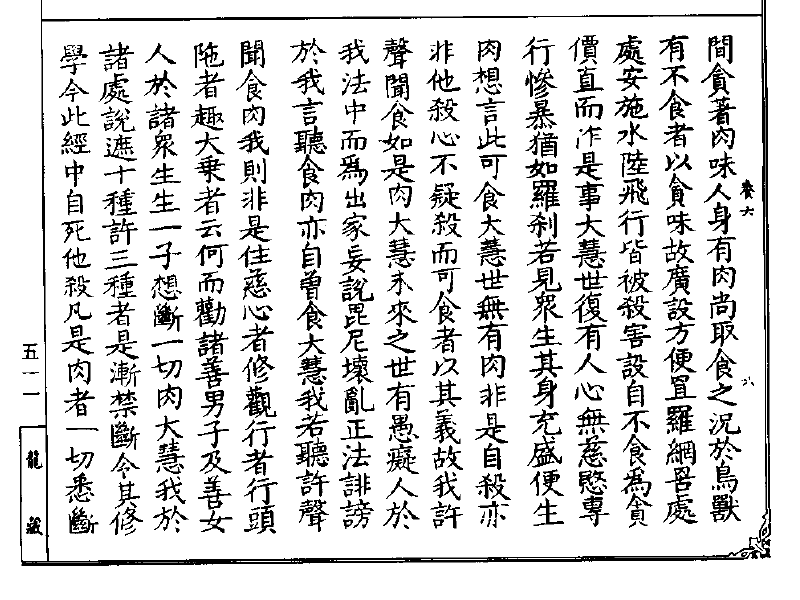 卷六
六
間貪著肉味人身有肉尚取食之況於鳥獸
有不食者以貪味故廣設方便罝羅網罟處
處安施水陸飛行皆被殺害設自不食為貪
價直而作是事大慧世復有人心無慈愍專
行慘暴猶如羅剎若見眾生其身充盛便生
肉想言此可食大慧世無有肉非是自殺亦
非他殺心不疑殺而可食者以其義故我許
聲聞食如是肉大慧未來之世有愚癡人於
我法中而為出家妄說毘尼壞亂正法誹謗
於我言聽食肉亦自曾食大慧我若聽許聲
聞食肉我則非是住慈心者修觀行者行頭
陁者趣大乘者云何而勸諸善男子及善女
人於諸眾生生一子想斷一切肉大慧我於
諸處說遮十種許三種者是漸禁斷令其修
學今此經中自死他殺凡是肉者一切悉斷
五一一
龍藏